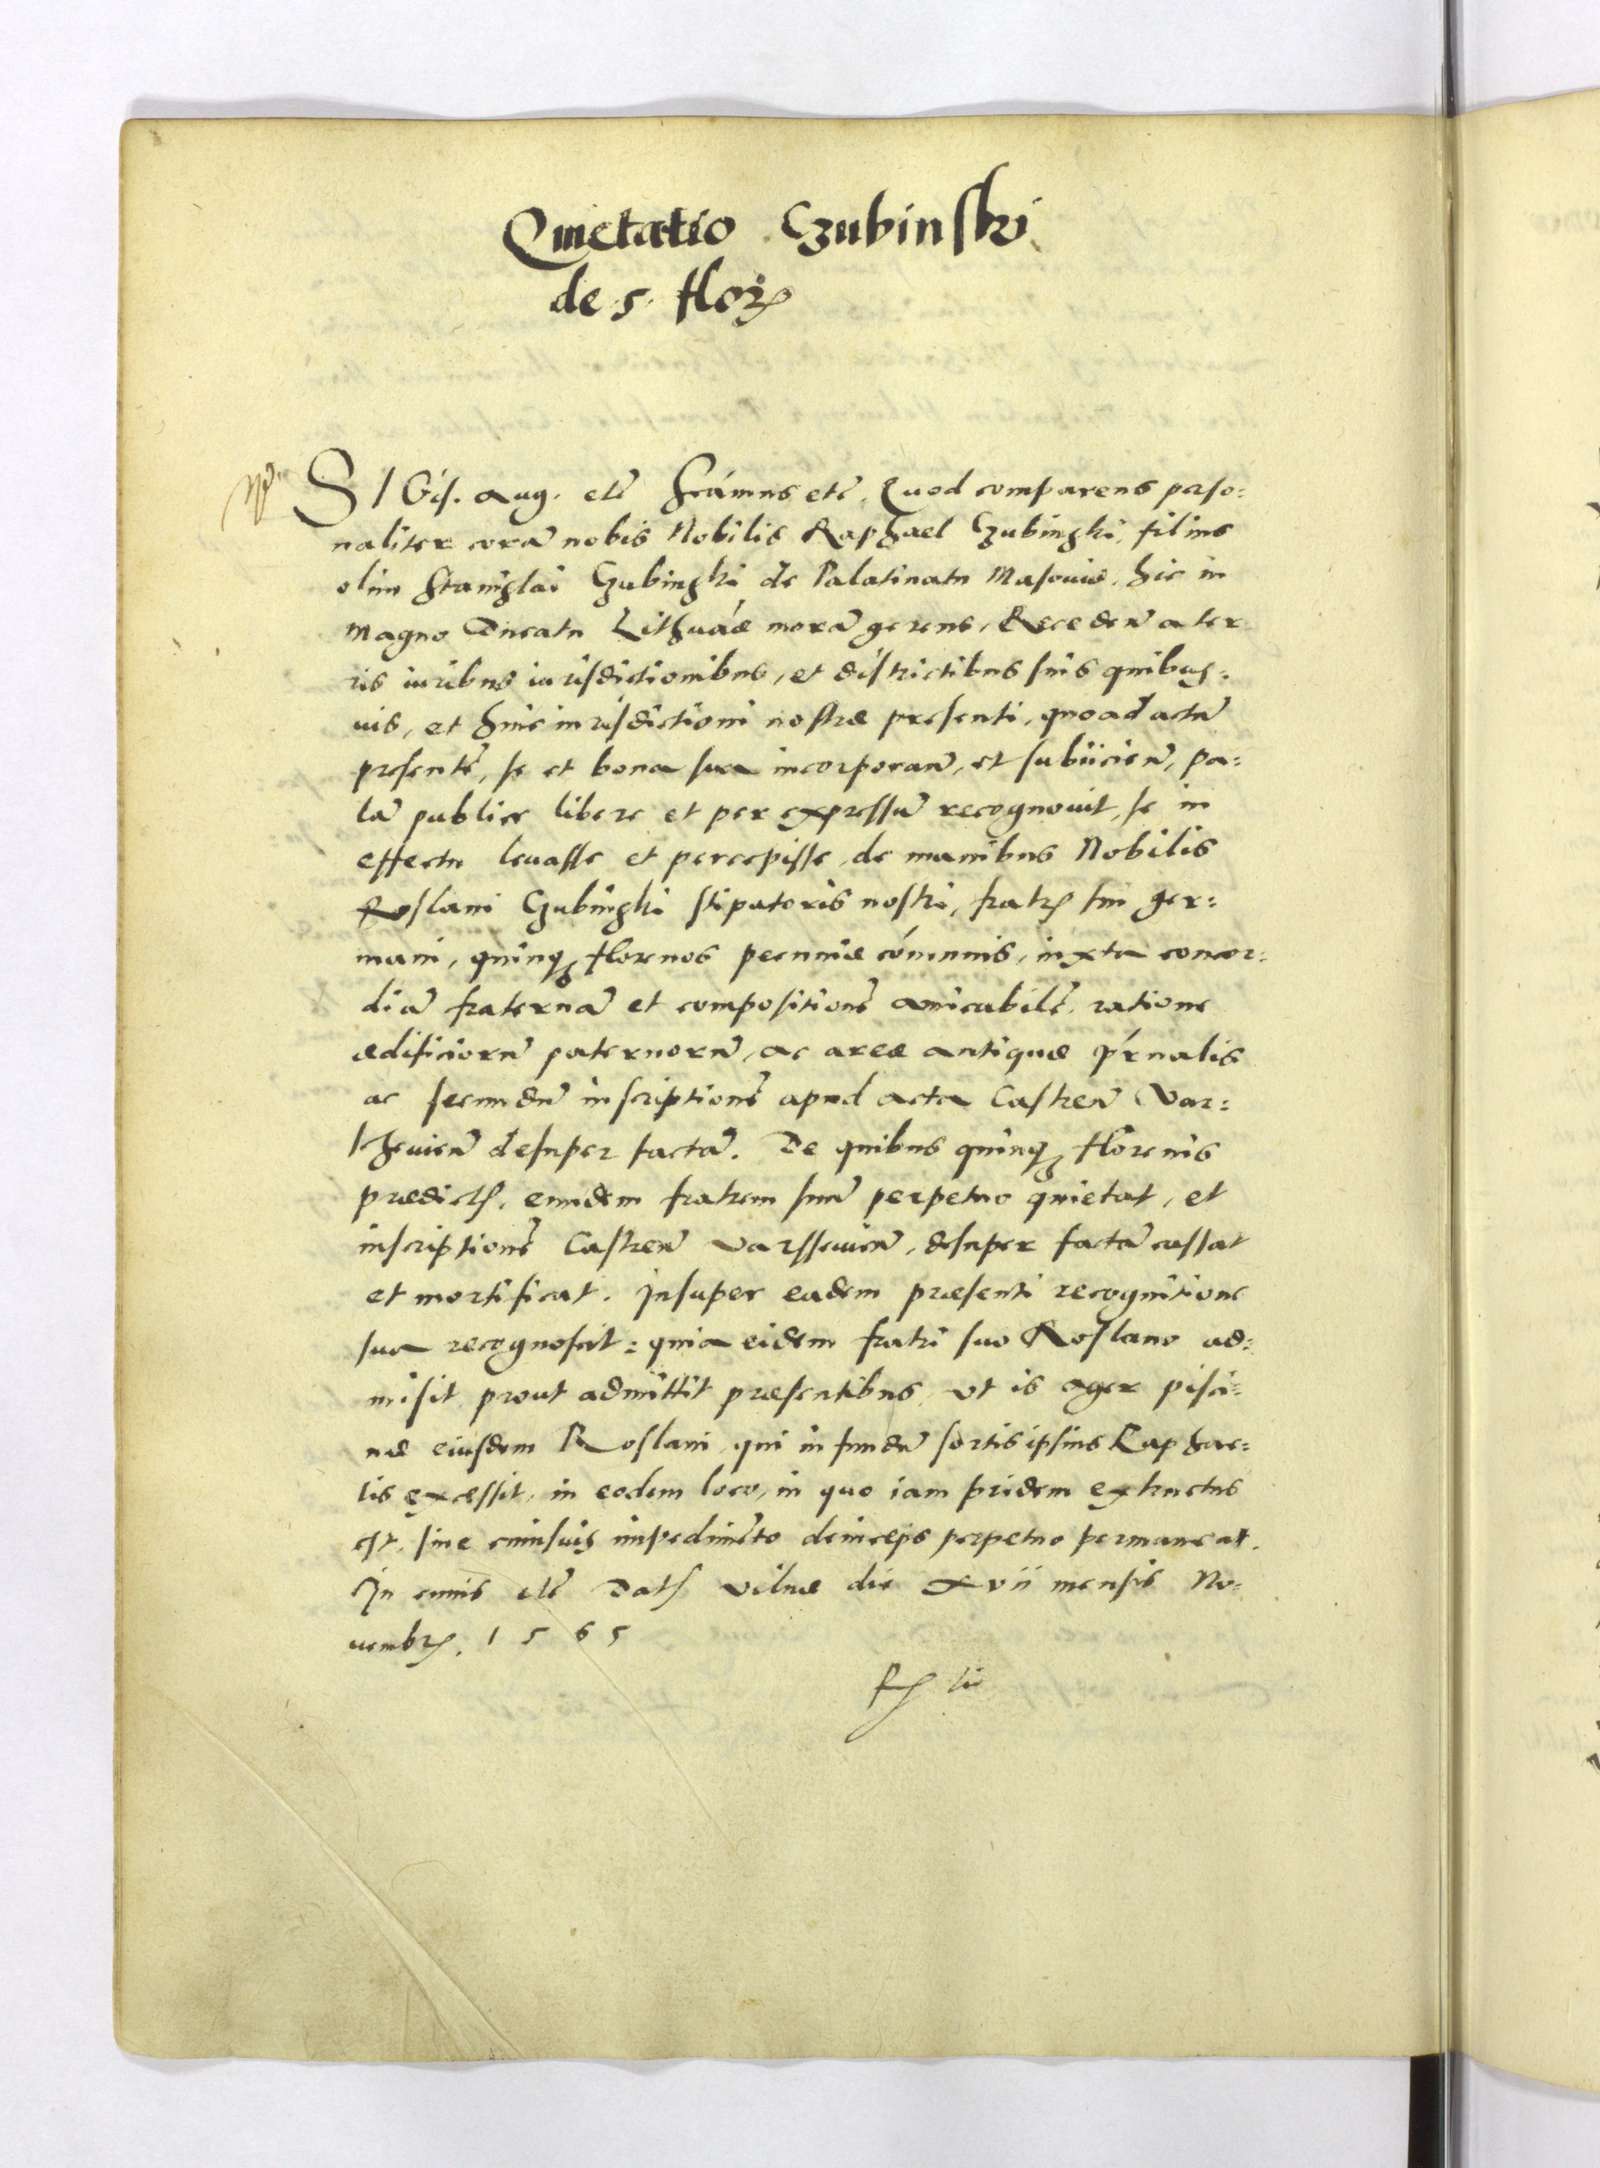 Quietatio Czubinski
de 5 flor
SIGis. Aug. etc̃ Scámus etc̃. Quod comparens perso:
naliter corã nobis Nobilis Raphael Czubinski, filius
olim Stanislai Czubinski de Palatinatu Masouiæ, hic in
Magno Ducatu Lithuáæ morã gerens, Recedeñ a ter
ris iuribus iurisdictionibus, et districtibus suis quibus:
uis, et huic iurisdictioni nostræ presenti, quoad actũ
presentẽ, se et bona sua incorporañ, et subiicieñ, pa:
lã publice libere et per expressũ recognouit, se in
effectu leuasse et percepisse, de manibus Nobilis
Roslani Czubinski stipatoris nostri, fratris sui ger:
mani, quinq florenos pecuniæ cómunis, iuxta concor:
diã fraternã et compositionẽ amicabilẽ, ratione
ædificiorũ paternorũ, ac areæ antiquæ
ac secundũ inscriptionẽ apud acta Castreñ Var:
scheuieñ desuper factã. De quibus quinq florenis
prædictis, eundem fratrem suũ perpetuo quietat, et
inscriptionẽ Castreñ Varsseuieñ, desuper factã cassat
et mortificat. Insuper eadem præsenti recognitione
sua recognoscit: quia eidem fratri suo Roslano ad:
misit prout admittit præsentibus, vt is ager pisci:
næ eiusdem Roslani, qui in fundũ sortis ipsius Raphae:
lis excessit, in eodem loco, in quo iam pridem extructus
est, sine cuiusuis impedimẽto deinceps perpetuo permaneat.
In cuius etc̃ Dat Vilnæ die xvii mensis No:
uembr. 1565